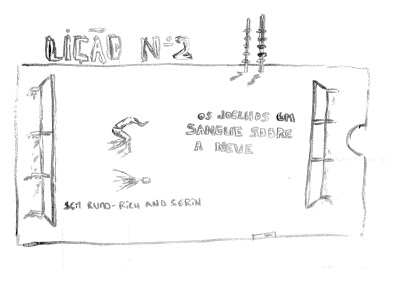 LIÇÃO Nº2
OS JOELHOS EM
SANGUE SOBRE
A NEVE
RICH AND SERIN